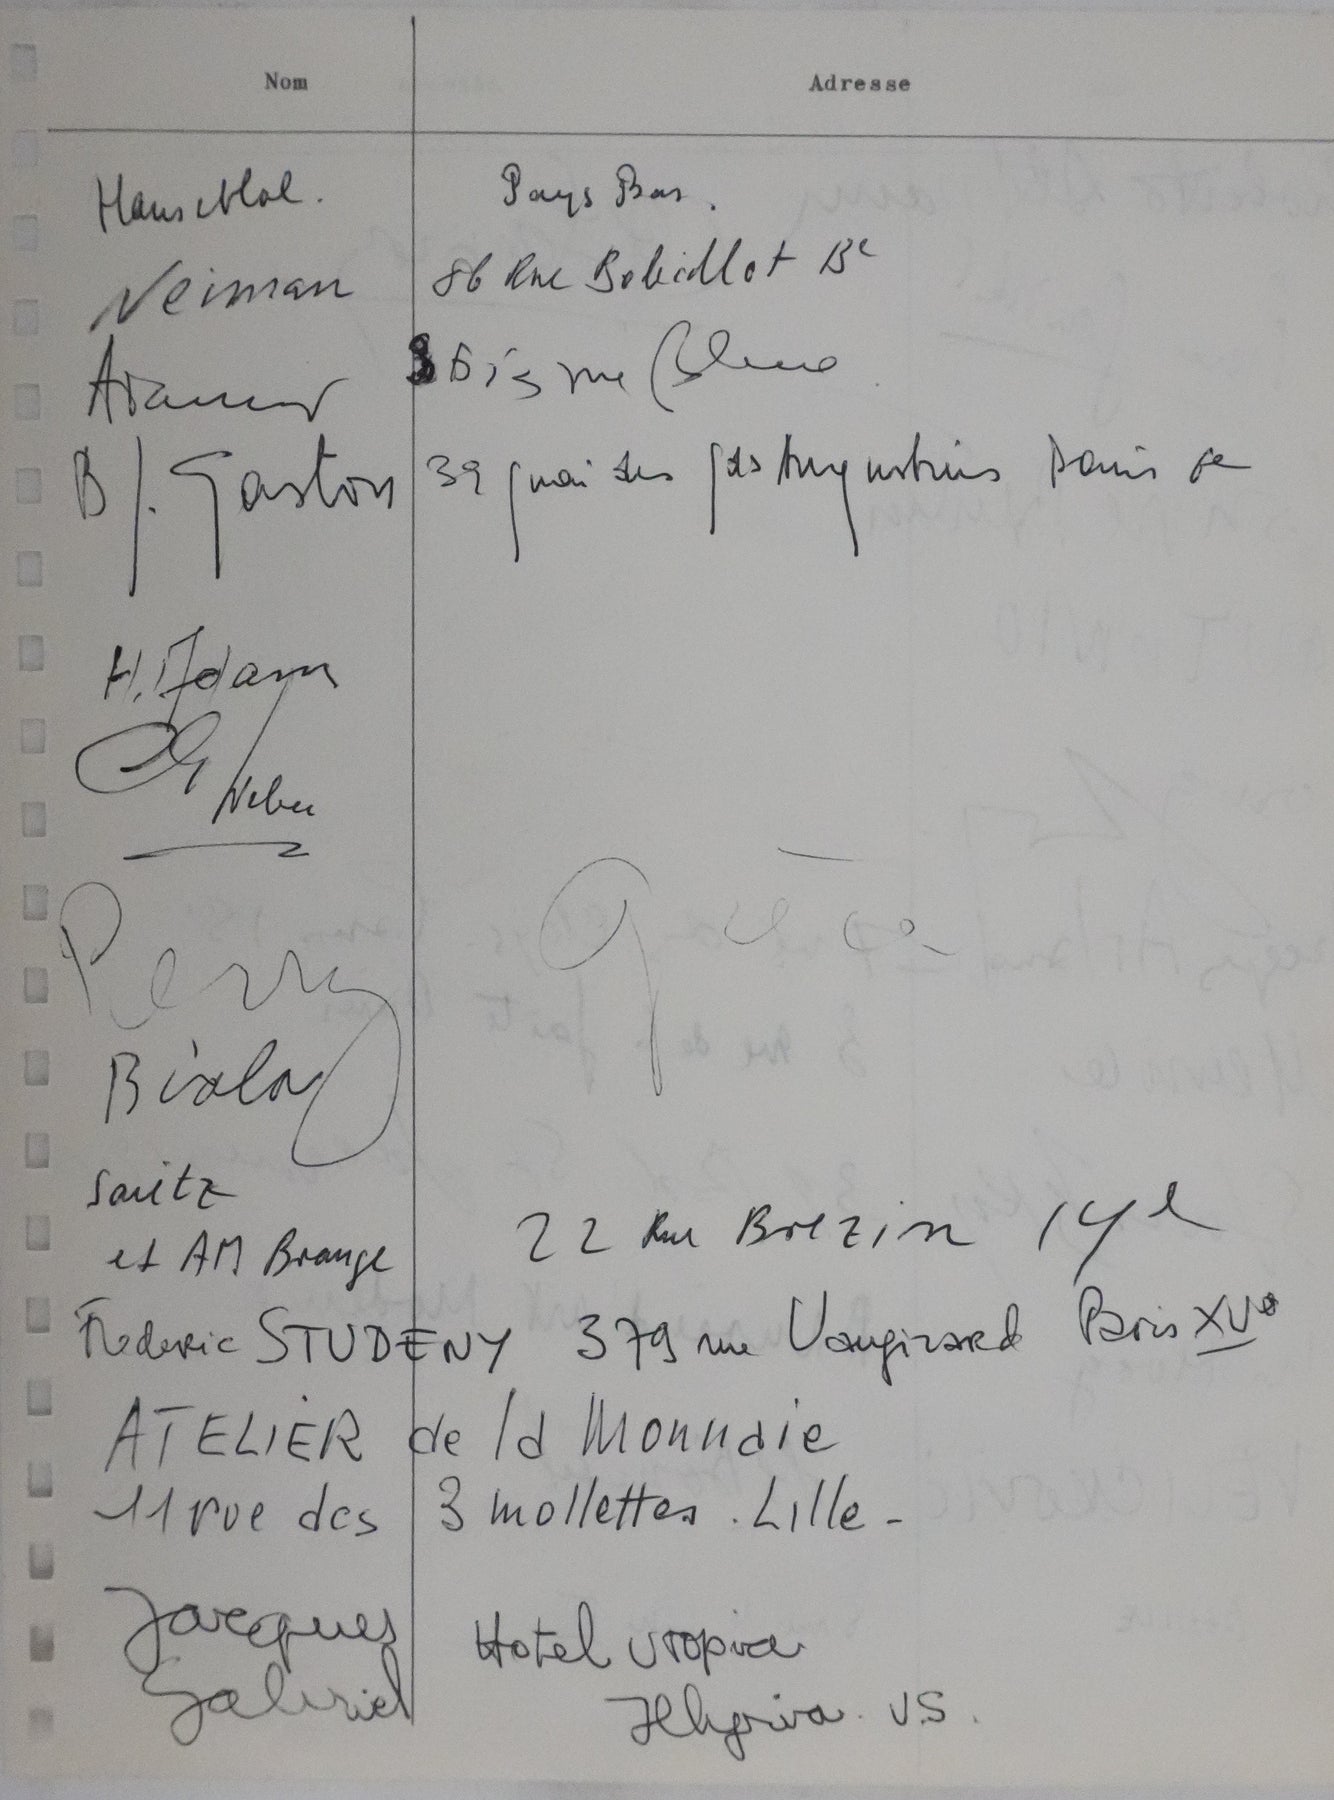 Nom Adresse
Hans Mol. Pays Bas.
Neiman 86 Rue Bobillot
bis rue
B J. Gaston 39 quai des gds Augustins Paris 6e
H. Adam
Weber
Perry
Grèce
Biala
et AM Brange 22 Rue Brezin 14e
Frederic STUDENY 379 rue Vaugirard Paris XVe
ATELIER de la Monnaie
11 rue des 3 mollettes. Lille -
Jacques Hotel Utopia
Gabriel V.S.